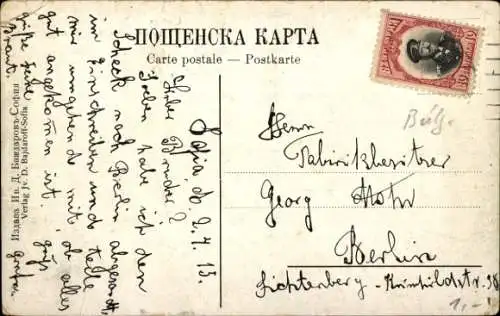 ПОЩЕНСКА КАРТА
Carte postale — Postkarte
Издава Ив. Д. Бождаровъ-София
Verlag Jv. D. Bajdaroff-Sofia
Sofia, d. 2.4.15.
Lieber Bruder!
Soeben habe ich den
Scheck nach Berlin abgesandt
im Einschreiben und teile
mir umgehend mit, ob alles
gut angekommen ist.
Herrn
Fabrikbesitzer
Georg
Berlin
Lichtenberg - Krimhildstr. 38
Bulg.
1,-